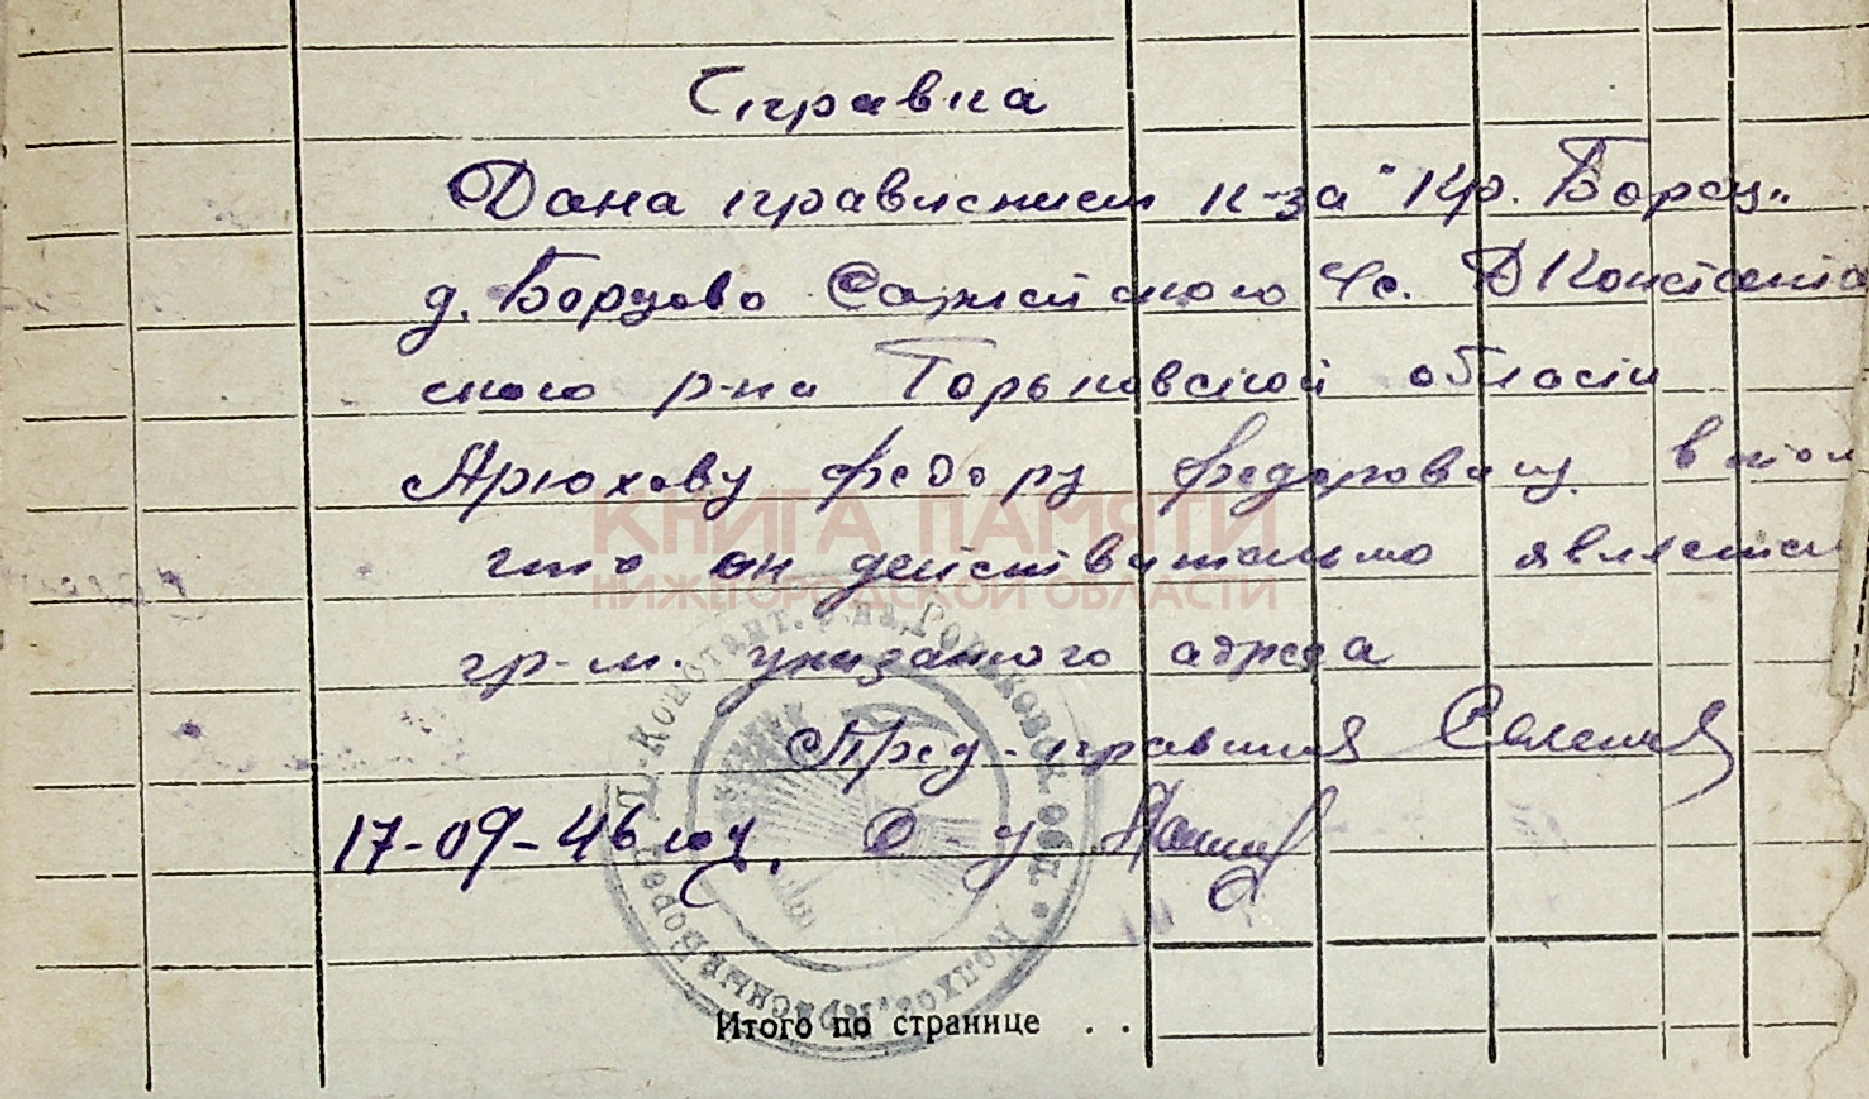 Справка
Дана правлением к-за "Кр. Борец"
д. Борцово с/с. Д Константи
ского р-на Горьковской области
Арюхову Федору Федоровичу в том
что он действительно является
гр-м. указанного адреса
Пред. правления
17-09-46 год.
КНИГА ПАМЯТИ
НИЖЕГОРОДСКОЙ ОБЛАСТИ
Д.-Констант. р-на, Горьковск. обл. • Колхоз „Красный Борец"
Итого по странице . .